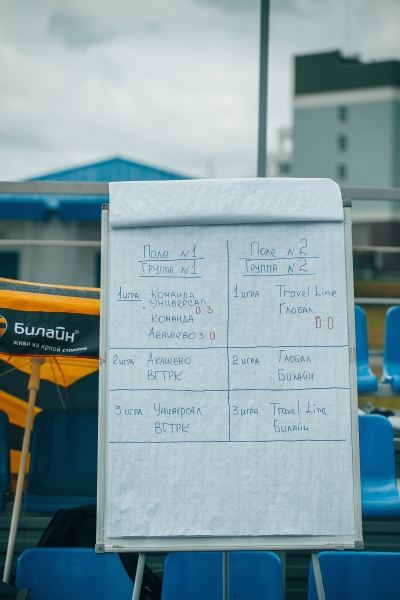 Поле №1
Группа №1
1 игра Команда
Универсал
0 3
Команда
Акашево 3 0
2 игра Акашево
ВГТРК
3 игра Универсал
ВГТРК
Поле №2
Группа №2
1 игра Travel Line
Глобал
0 0
2 игра Глобал
Билайн
3 игра Travel Line
Билайн
Билайн
живи на яркой стороне